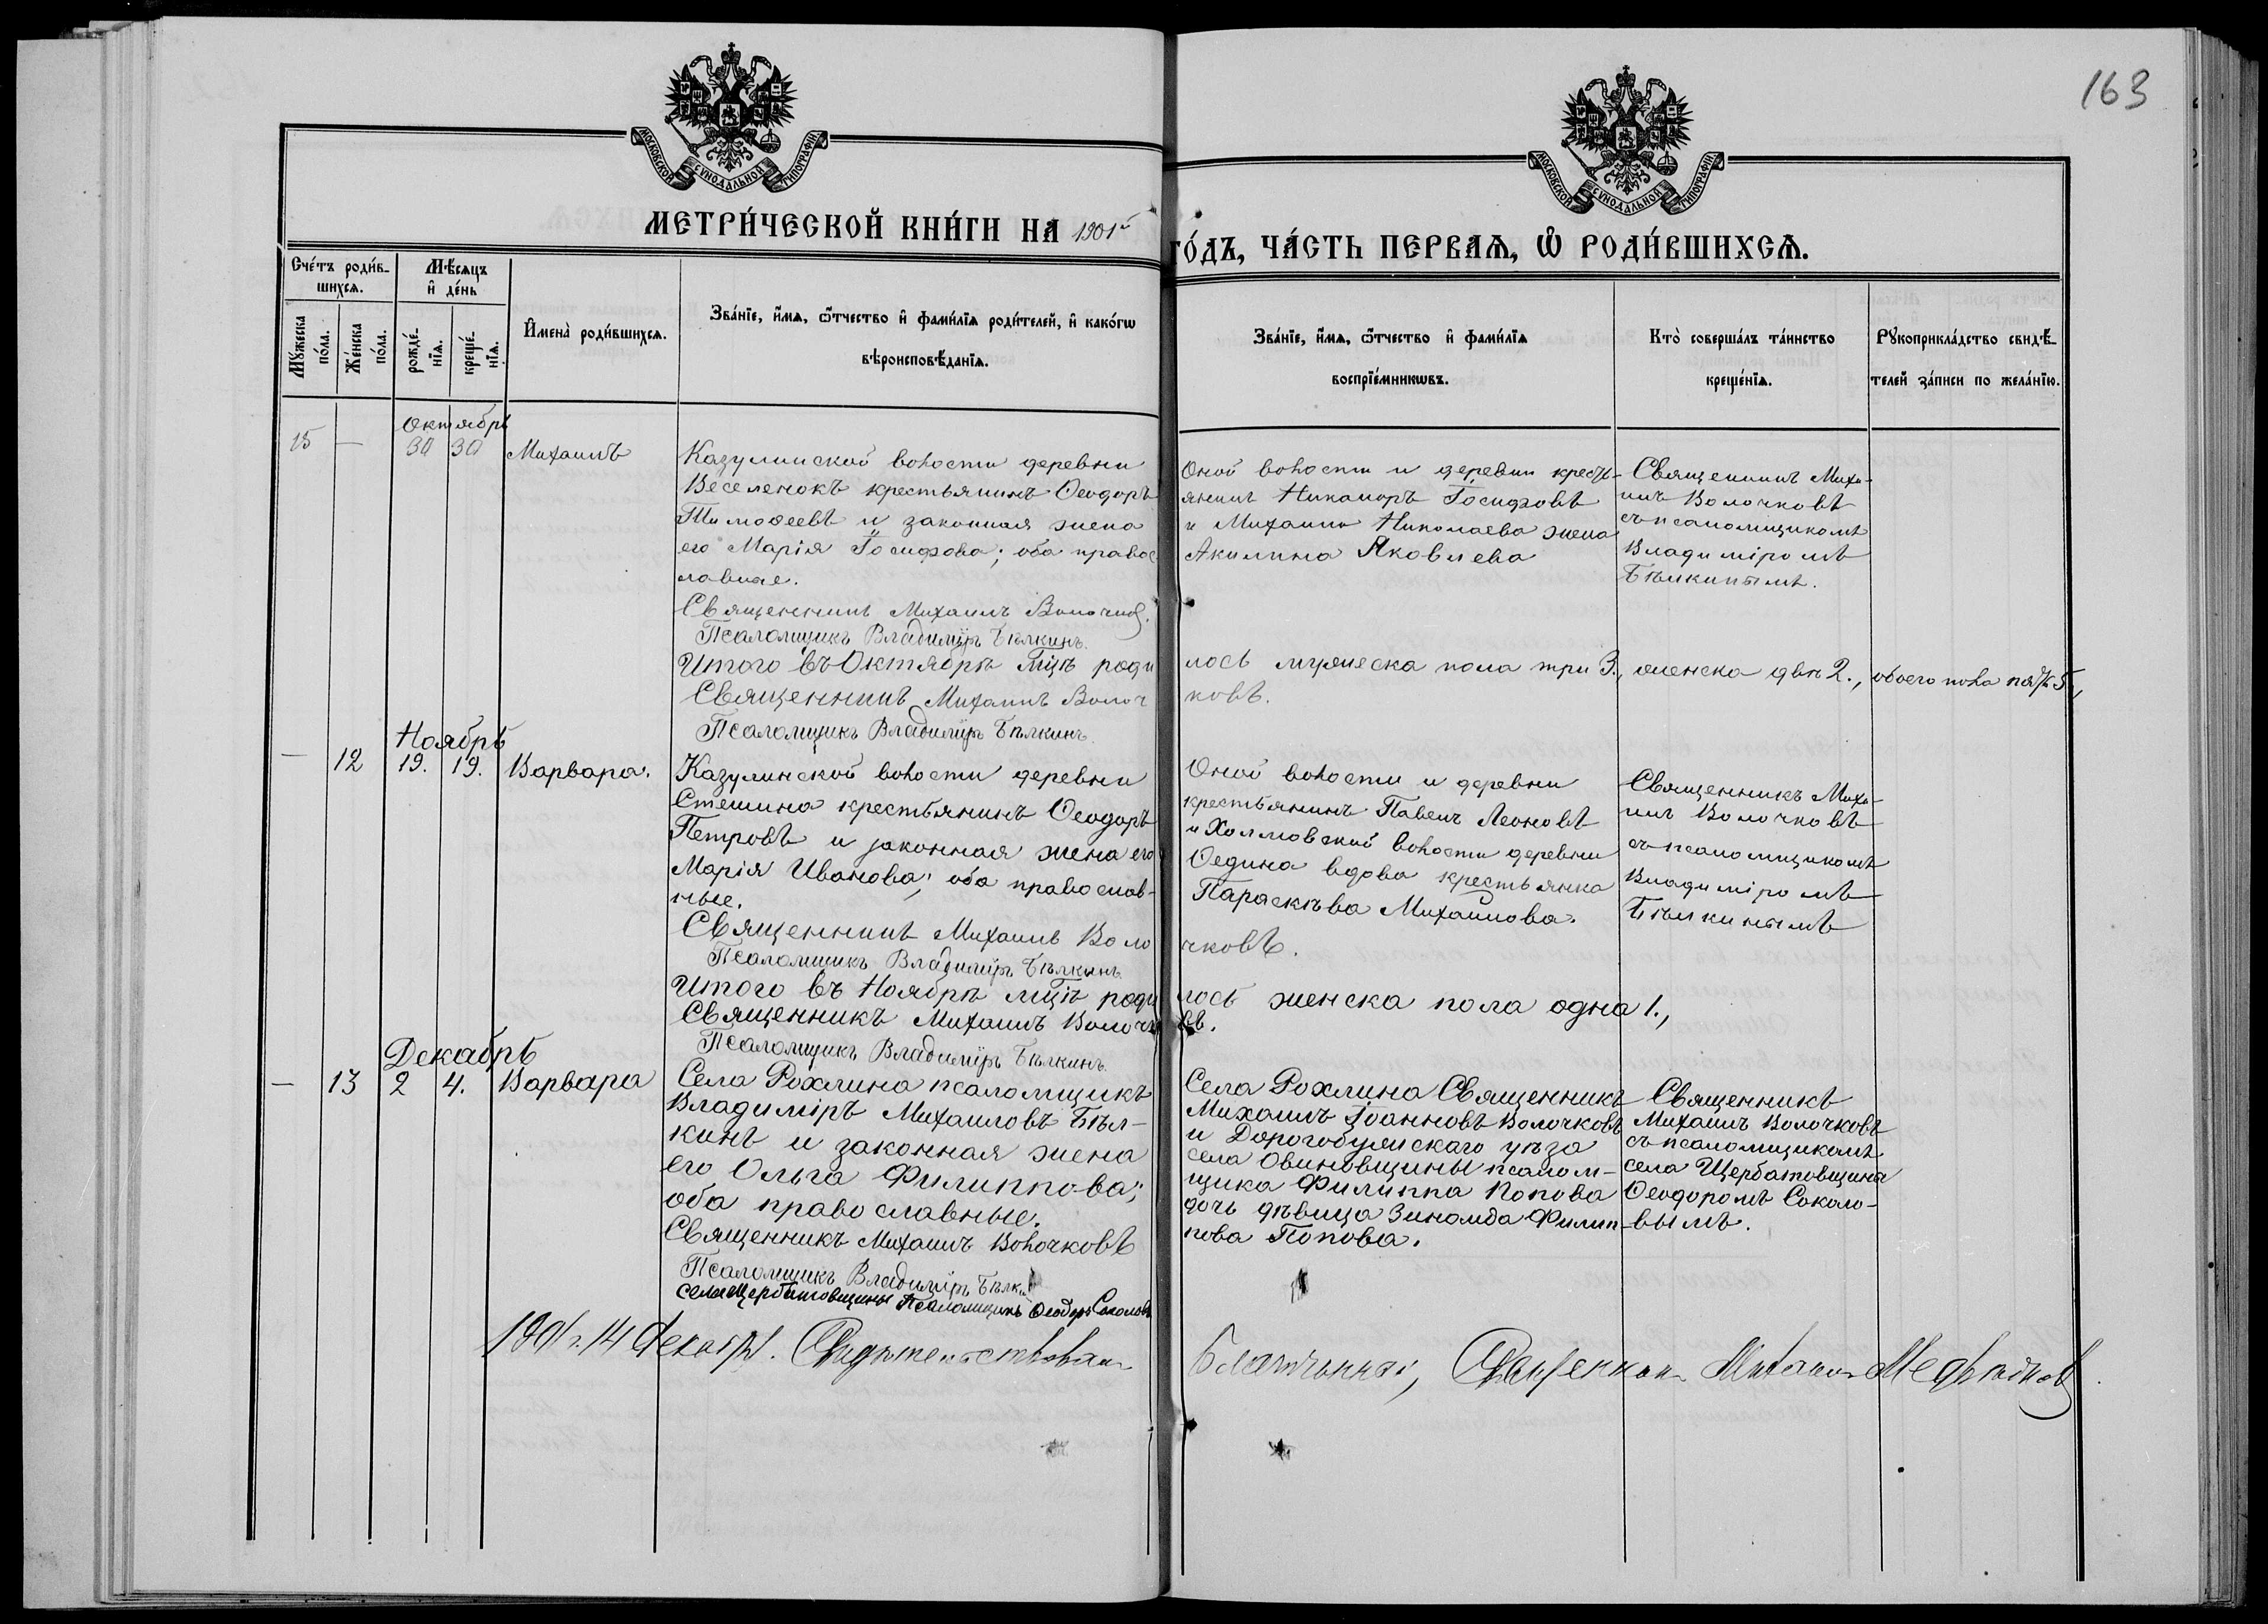 163
МОСКОВСКОЙ СѴНОДАЛЬНОЙ ТИПОГРАФІИ
МОСКОВСКОЙ СѴНОДАЛЬНОЙ ТИПОГРАФІИ
МЕТРИ́ЧЕСКОЙ КНИ́ГИ НА 1901й
ГО́ДЪ, ЧА́СТЬ ПЕРВАѦ, Ѡ҆ РОДИ́ВШИХСѦ.
Сче́тъ роди́в-
шихсѧ.
Мѣ́сѧцъ
и҆ де́нь
Мꙋ́жеска
по́ла.
Же́нска
по́ла.
рожде́-
нїѧ.
креще́-
нїѧ.
И҆мена̀ роди́вшихсѧ.
Зва́нїе, и҆́мѧ, ѻ҆́тчество и҆ фами́лїѧ роди́телей, и҆ како́гѡ
вѣроисповѣ́данїѧ.
Зва́нїе, и҆́мѧ, ѻ҆́тчество и҆ фами́лїѧ
воспрїе́мникѡвъ.
Кто̀ соверша́лъ та́инство
креще́нїѧ.
Рꙋкоприкла́дство свидѣ́-
телей за́писи по жела́нїю.
Октябрь
15 — 30 30 Михаилъ
Казулинской волости деревни
Веселенокъ крестьянинъ Ѳеодоръ
Тимоѳеевъ и законная жена
его Марія Іосифова; оба правос
лавные.
Священникъ Михаилъ Волочков.
Псаломщикъ Владиміръ Бѣлкинъ.
Оной волости и деревни кресть-
янинъ Никаноръ Іосифовъ
и Михаила Николаева жена
Акилина Яковлева
Священникъ Миха-
илъ Волочковъ
съ псаломщикомъ
Владиміромъ
Бѣлкинымъ.
Итого въ Октябрѣ мцѣ роди лось мужеска пола три 3., женска двѣ 2., обоего пола пять 5.,
Священникъ Михаилъ Волоч ковъ.
Псаломщикъ Владиміръ Бѣлкинъ.
Ноябрь
— 12 19. 19. Варвара.
Казулинской волости деревни
Стешина крестьянинъ Ѳеодоръ
Петровъ и законная жена его
Марія Иванова; оба православ-
ные.
Оной волости и деревни
крестьянинъ Павелъ Леоновъ
и Холмовской волости деревни
Ѳедина вдова крестьянка
Параскѣва Михаилова.
Священникъ Миха-
илъ Волочковъ
съ псаломщикомъ
Владиміромъ
Бѣлкинымъ
Священникъ Михаилъ Воло чковъ.
Псаломщикъ Владиміръ Бѣлкинъ.
Итого въ Ноябрѣ мцѣ роди лось женска пола одна 1.,
Священникъ Михаилъ Волочк въ.
Псаломщикъ Владиміръ Бѣлкинъ.
Декабрь
— 13 2 4. Варвара
Села Рохлина псаломщикъ
Владиміръ Михаиловъ Бѣл-
кинъ и законная жена
его Ольга Филиппова;
оба православные.
Священникъ Михаилъ Волочковъ
Псаломщикъ Владиміръ Бѣлки
села Щербатовщины Псаломщикъ Ѳеодоръ Соколовъ
Села Рохлина Священникъ
Михаилъ Іоанновъ Волочковъ
и Дорогобужскаго уѣзда
села Овиновщины псалом-
щика Филиппа Попова
дочь дѣвица Зинаида Филип-
пова Попова.
Священникъ
Михаилъ Волочковъ
съ псаломщикомъ
села Щербатовщина
Ѳеодоромъ Соколо-
вымъ.
1901 г. 14 Декабря. Свидѣтельствовалъ Благочинный, Священникъ Михаилъ Медвѣдковъ